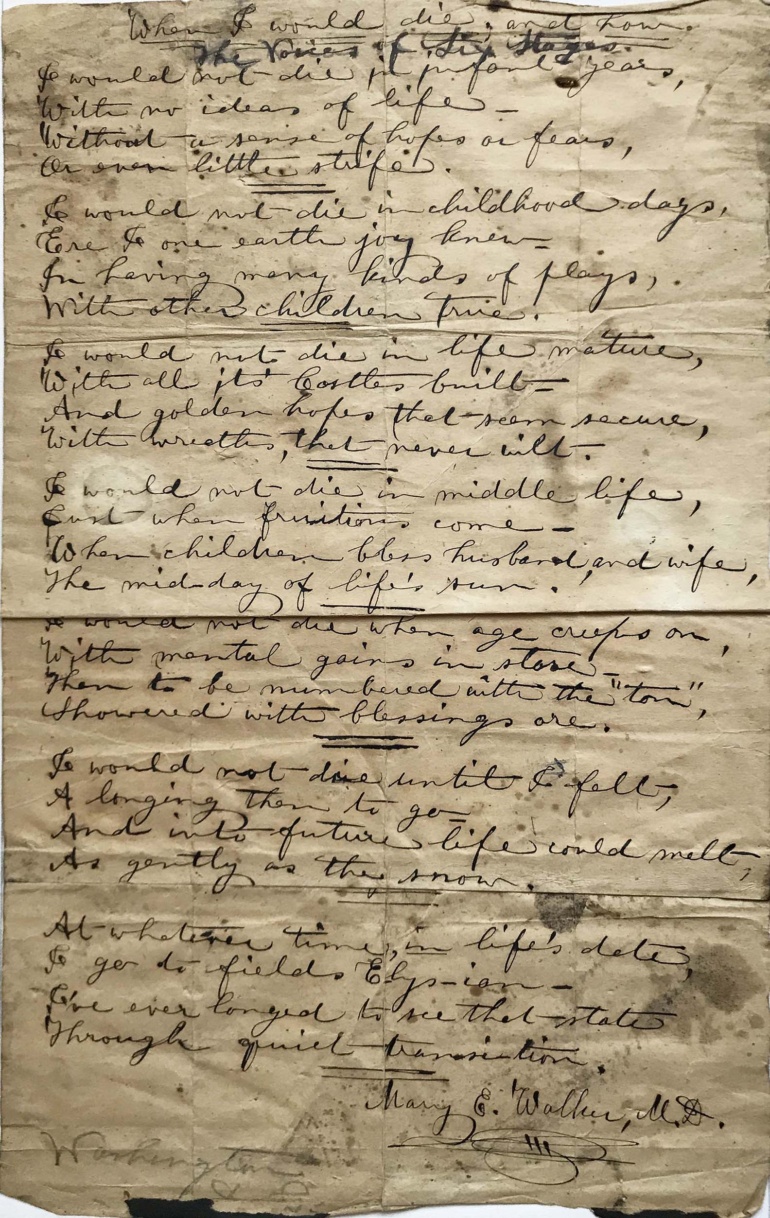 When I would die, and how.
The Voices of Six Stages.
I would not die in infant years,
With no ideas of life –
Without a sense of hopes or fears,
Or even little strife.
I would not die in childhood days,
Ere I one earth joy knew –
In having many kinds of plays,
With other children true.
I would not die in life mature,
With all its' Castles built –
And golden hopes that seem secure,
With wreaths, that never wilt.
I would not die in middle life,
Just when fruitions come –
When children bless husband and wife,
The mid-day of life's sun.
I would not die when age creeps on,
With mental gains in store –
Then to be numbered with the "ton",
Showered with blessings are.
I would not die until I felt,
A longing then to go –
And into future life could melt,
As gently as the snow.
At whatever time, in life's date,
I go to fields Elys-ian –
I've ever longed to see that state
Through quiet transition.
Mary E. Walker, M.D.
Washington